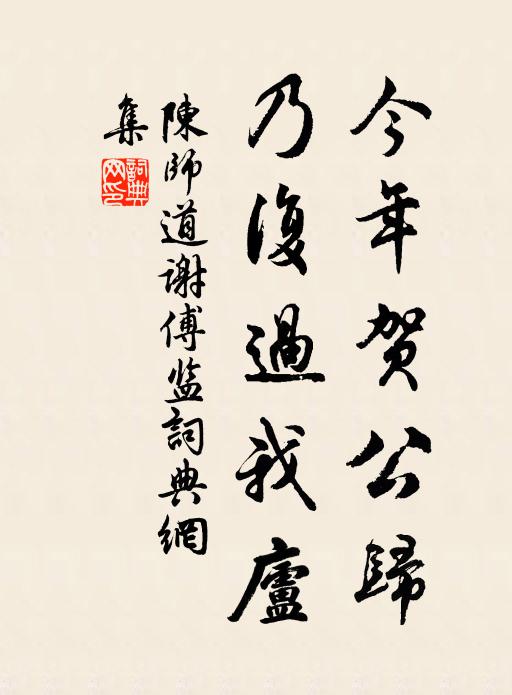 今年贺公歸
乃復過我廬
陳師道谢傅监詞典網
集
詞典
网印